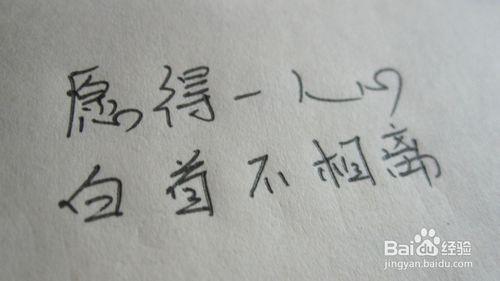 愿得一人心
白首不相离
Baidu经验
jingyan.baidu.com